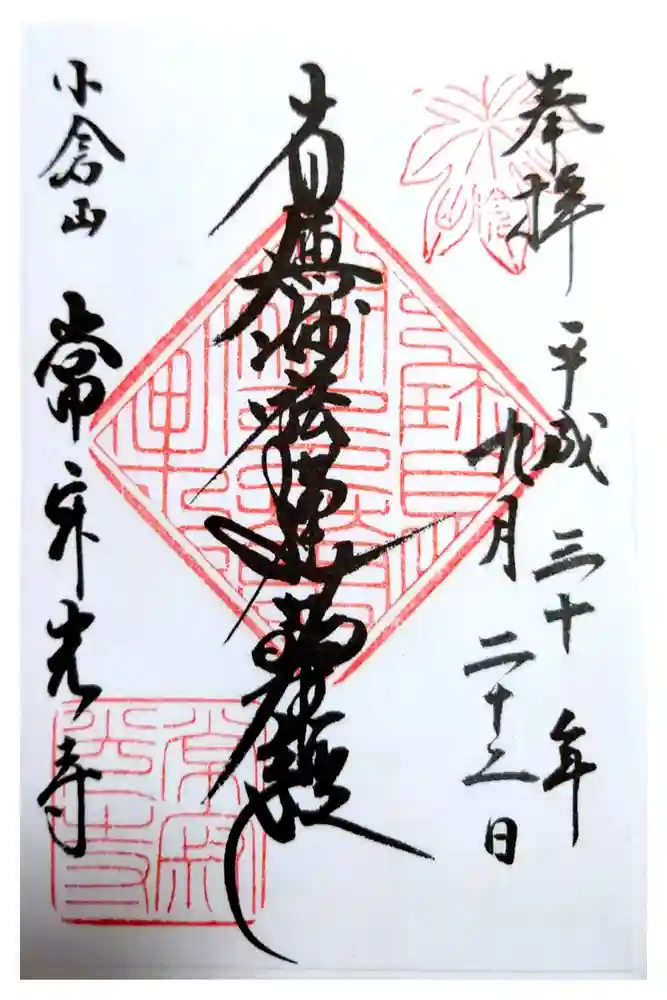 奉拝
平成三十年
九月二十三日
南無妙法蓮華経
小倉山 常寂光寺